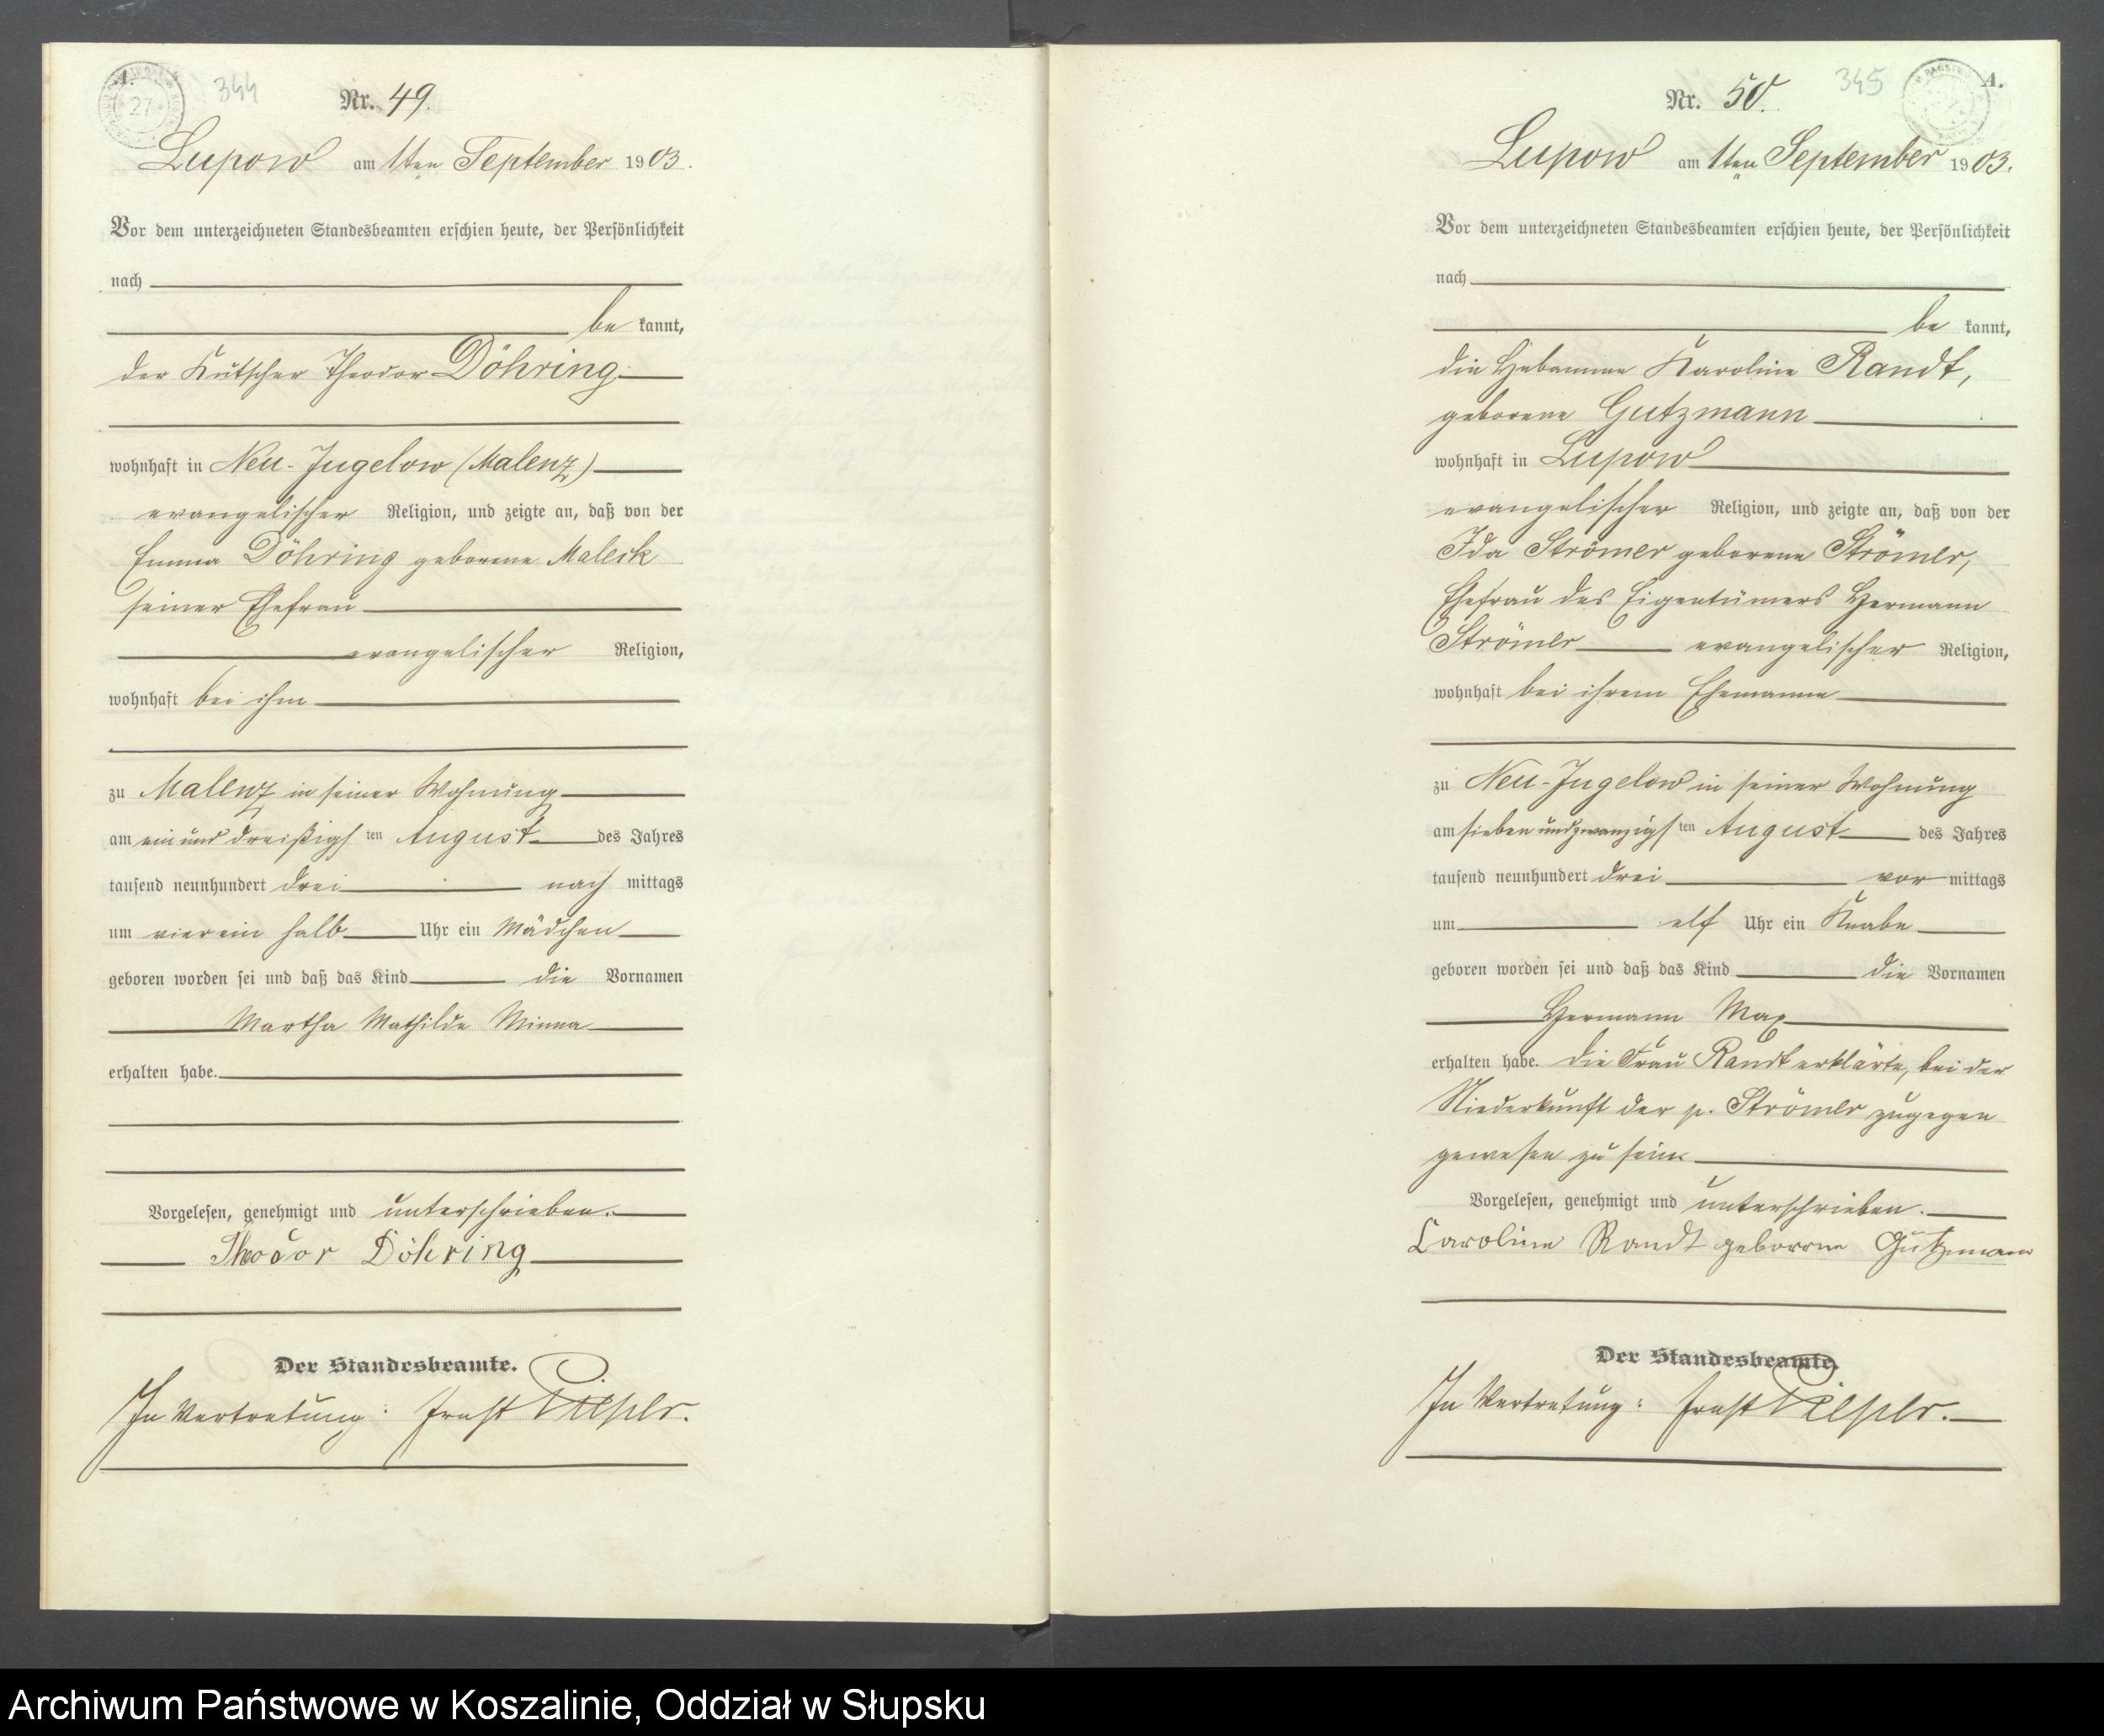 A.
344
27
Nr. 49.
Lupow am 1ten September 1903.
Vor dem unterzeichneten Standesbeamten erschien heute, der Persönlichkeit
nach
be kannt,
der Kutscher Theodor Döhring
wohnhaft in Neu-Jugelow (Malenz)
evangelischer Religion, und zeigte an, daß von der
Emma Döhring geborene Maleck
seiner Ehefrau
evangelischer Religion,
wohnhaft bei ihm
zu Malenz in seiner Wohnung
am ein und dreißigs ten August des Jahres
tausend neunhundert drei nach mittags
um vier ein halb Uhr ein Mädchen
geboren worden sei und daß das Kind die Vornamen
Martha Mathilde Minna
erhalten habe.
Vorgelesen, genehmigt und unterschrieben.
Theodor Döhring
Der Standesbeamte.
In Vertretung: Ernst
345
A.
Nr. 50.
Lupow am 1ten September 1903.
Vor dem unterzeichneten Standesbeamten erschien heute, der Persönlichkeit
nach
be kannt,
die Hebamme Karoline Randt,
geborene Gutzmann
wohnhaft in Lupow
evangelischer Religion, und zeigte an, daß von der
Ida Strömer geborene Strömer,
Ehefrau des Eigentümers Hermann
Strömer evangelischer Religion,
wohnhaft bei ihrem Ehemanne
zu Neu-Jugelow in seiner Wohnung
am sieben und zwanzigs ten August des Jahres
tausend neunhundert drei vor mittags
um elf Uhr ein Knabe
geboren worden sei und daß das Kind die Vornamen
Hermann Max
erhalten habe. Die Frau Randt erklärte, bei der
Niederkunft der p. Strömer zugegen
gewesen zu sein.
Vorgelesen, genehmigt und unterschrieben.
Caroline Randt geborene Gutzmann
Der Standesbeamte.
In Vertretung: Ernst
Archiwum Państwowe w Koszalinie, Oddział w Słupsku